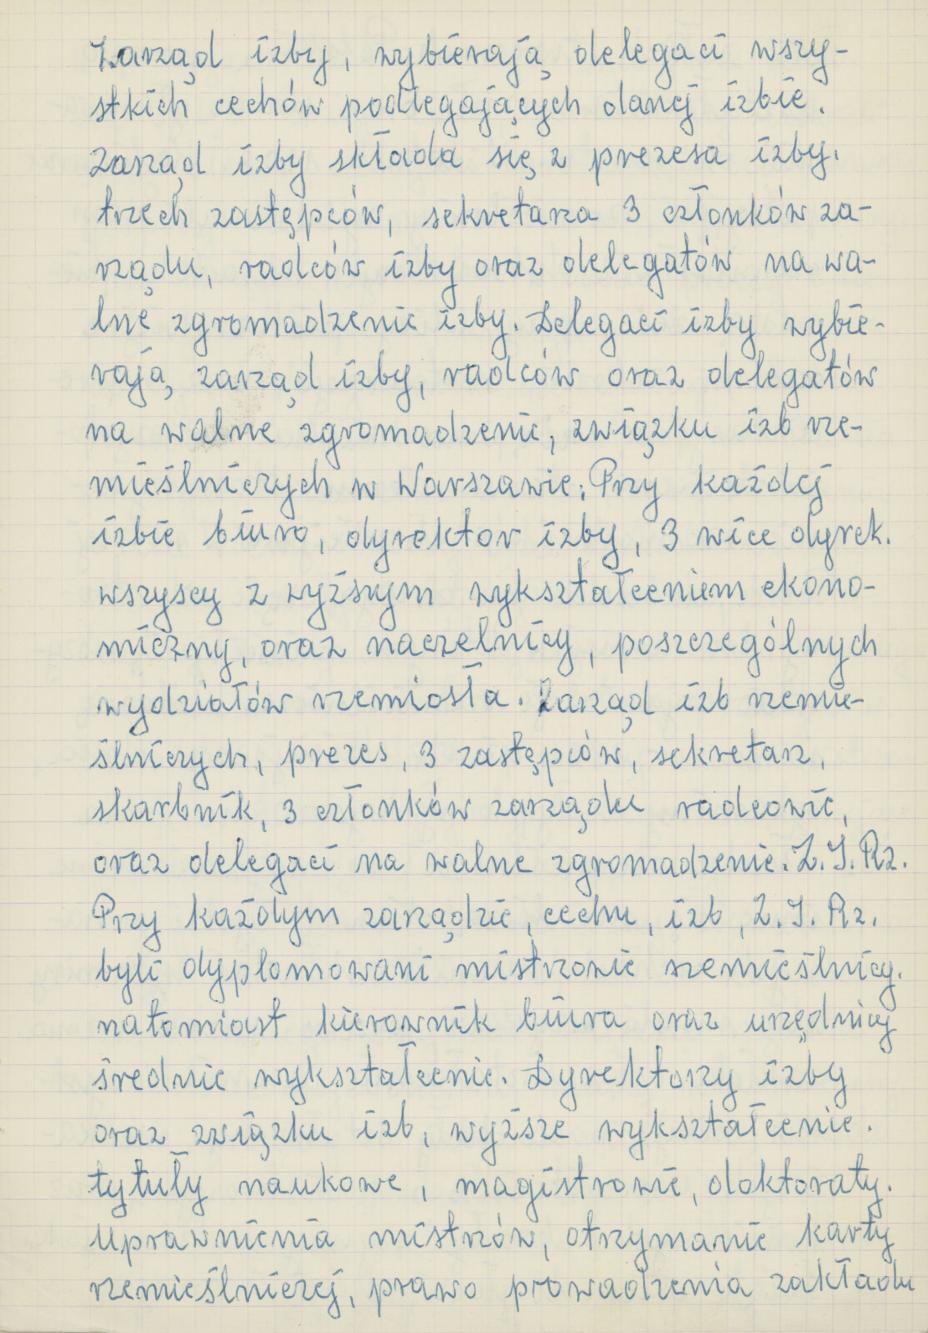 Zarząd izby, wybierają delegaci wszy-
stkich cechów podlegających danej izbie.
Zarząd izby składa się z prezesa izby.
trzech zastępców, sekretarza 3 członków za-
rządu, radców izby oraz delegatów na wa-
lne zgromadzenie izby. Delegaci izby wybie-
rają zarząd izby, radców oraz delegatów
na walne zgromadzenie, związku izb rze-
mieślniczych w Warszawie; Przy każdej
izbie biuro, dyrektor izby, 3 wice dyrek.
wszyscy z wyższym wykształceniem ekono-
miczny, oraz naczelnicy, poszczególnych
wydziałów rzemiosła. Zarząd izb rzemie-
ślniczych, prezes, 3 zastępców, sekretarz,
skarbnik, 3 członków zarządu radcowie,
oraz delegaci na walne zgromadzenie. Z.I.Rz.
Przy każdym zarządzie, cechu, izb, Z.I.Rz.
byli dyplomowani mistrzowie rzemieślnicy.
natomiast kierownik biura oraz urzędnicy
średnie wykształcenie. Dyrektorzy izby
oraz związku izb, wyższe wykształcenie.
tytuły naukowe, magistrowie, doktoraty.
Uprawnienia mistrzów, otrzymanie karty
rzemieślniczej, prawo prowadzenia zakładu